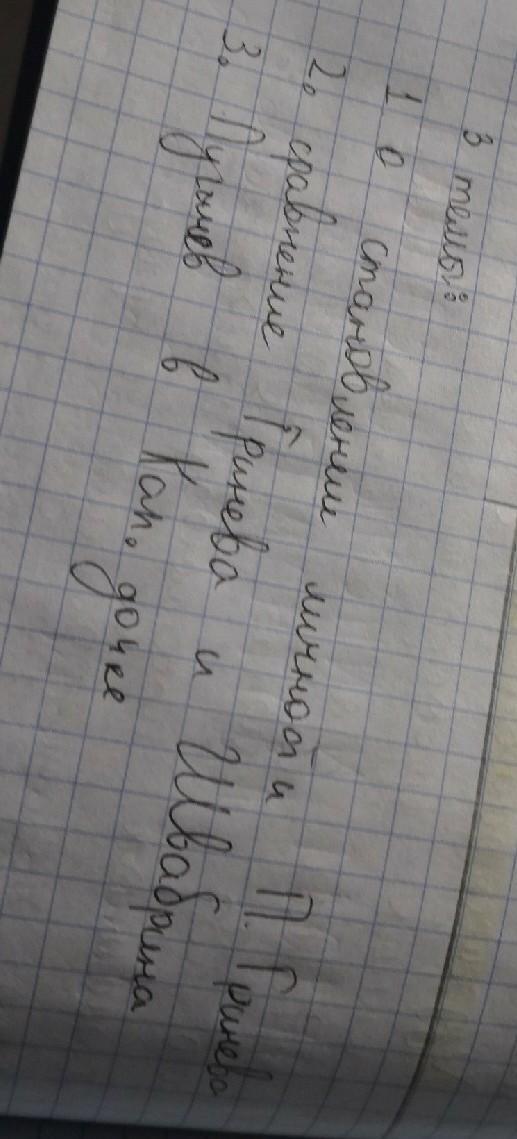 3 темы:
1 о становлении личности П. Гринева
2. сравнение Гринева и Швабрина
3. Пугачев в Кап. дочке